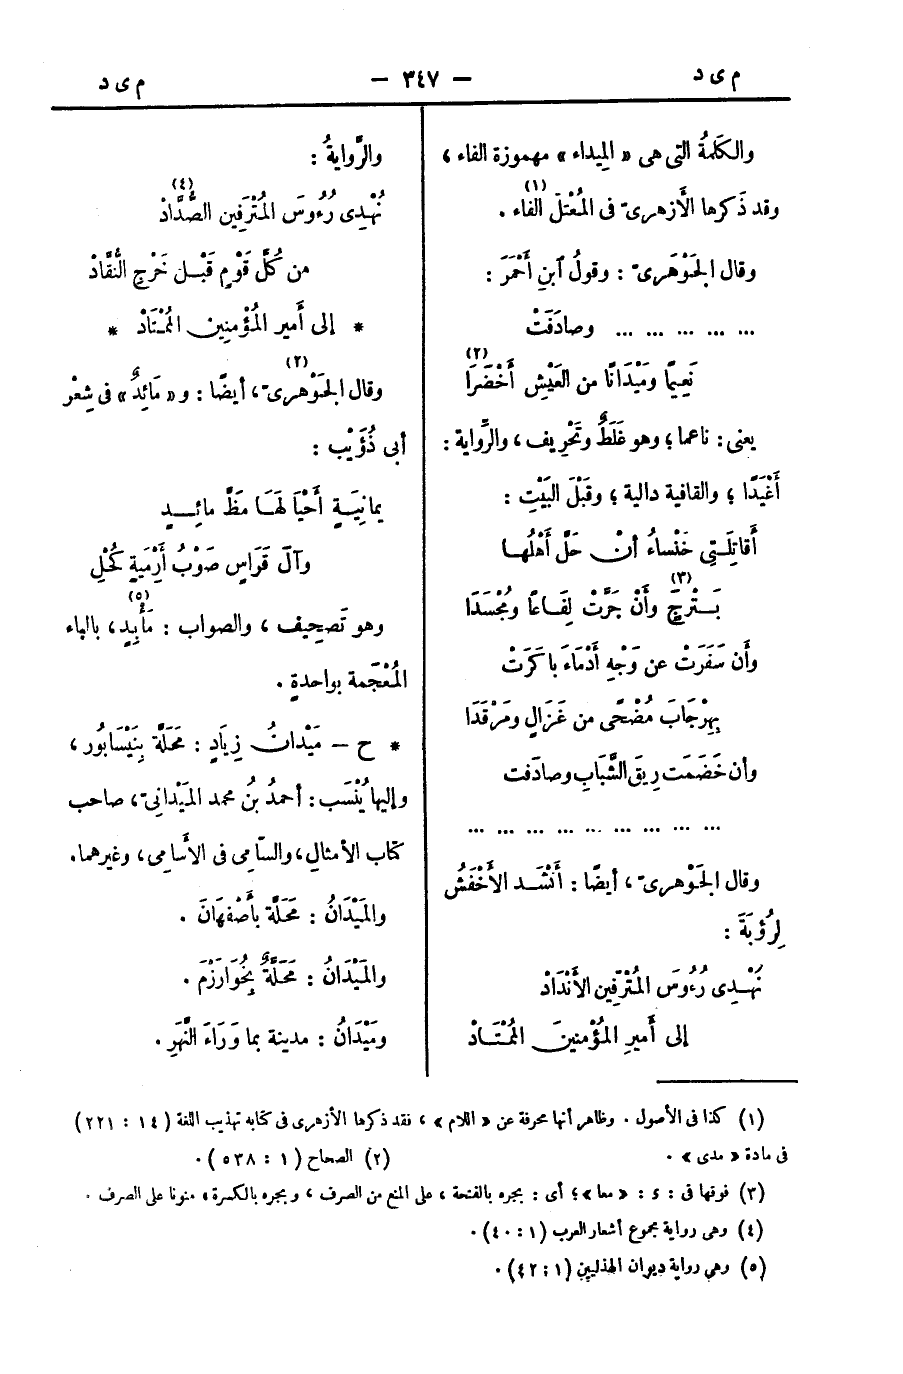 م ى د
— ٣٤٧ —
م ى د
والكَلمةُ التى هى « المِيداء » مهموزة الفاء ،
وقد ذَكرها الأَزهرىّ فى المُعْتلّ (١) الفاء .
وقال الجَوْهَرىّ : وقولُ ٱبنِ أَحْمَرَ :
... ... ... ... ... وصادَفَتْ
نَعِيمًا ومَيْدَانًا من العَيْشِ أَخْضَرَا (٢)
يعنى : ناعما ؛ وهو غَلَطٌ وتَحْرِيف ، والرِّواية :
أَغْيَدَا ؛ والقافية دالية ؛ وقَبْلَ البَيْتِ :
أَقاتِلَـتِى خَنْساءُ أنْ حَلَّ أَهْلُهـا
بَـتْرِجَ (٣) وأَنْ جَرَّتْ لِفَـاعًا ومُجْسَدَا
وأَن سَفَرَتْ عن وَجْهِ أَدْمَاءَ باكَرَتْ
بِهِرْجَابَ مُضْحًى من غَزَالٍ ومَرْقَدَا
وأن خَضَمَت رِيقَ الشَّبَابِ وصادَفت
... ... ... ... ... ... ... ... ...
وقال الجَوْهرىّ ، أيضًا : أَنْشَـد الأَخْفَشُ
لِرُؤبَةَ :
نُهْـدِى رُءُوسَ المُتْرَفِين الأَنْدَادْ
إلى أَميرِ المُؤْمنِينَ المُمْتَـادْ
والرِّوايةُ :
نُهْـدِى رُءُوسَ المُتْرَفِين الصُّدَّادْ (٤)
من كُلِّ قَوْمٍ قَبْـل خَرْجِ النُّقَّادْ
* إلى أَمير المُؤْمنين المُمْتَادْ *
وقال الجَوْهرىّ (٢) ، أيضًا : و« مَائِدٌ » فى شِعْر
أبى ذُؤَيْب :
يمانِيَـةٍ أَحْيَا لَهَـا مَظَّ مائِـدٍ
وآلَ قَرَاسٍ صَوْبُ أَرْمِيَةٍ كُحْلِ
وهو تَصحِيف ، والصواب : مَأْبِدٍ (٥) ، بالباء
المُعْجَمة بواحدةٍ .
* ح — مَيْدانُ زِيادٍ : مَحَلّةٌ بِنَيْسَابُور ،
وإليها يُنْسَب : أحمدُ بنُ محمد المَيْدانىّ ، صاحب
كتاب الأمثالِ ، والسّامِى فى الأَسامِى ، وغيرهما .
والمَيْدَانُ : مَحَلّةٌ بأَصْفهَانَ .
والمَيْدَانُ : مَحَلّةٌ بِخُوَارَزْمَ .
ومَيْدَانُ : مدينة بما وَرَاءَ النَّهَرِ .
(١) كذا فى الأصول . وظاهر أنها محرفة عن « اللام » ، فقد ذكرها الأزهرى فى كتابه تهذيب اللغة ( ١٤ : ٢٢١ )
فى مادة « مدى » .
(٢) الصحاح ( ١ : ٥٣٨ ) .
(٣) فوقها فى : s : « معا » ؛ أى : بجره بالفتحة ، على المنع من الصرف ، وبجره بالكسرة ، منونا على الصرف .
(٤) وهى رواية مجموع أشعار العرب ( ١ : ٤٠ ) .
(٥) وهى رواية ديوان الهذليين ( ١ : ٤٢ ) .